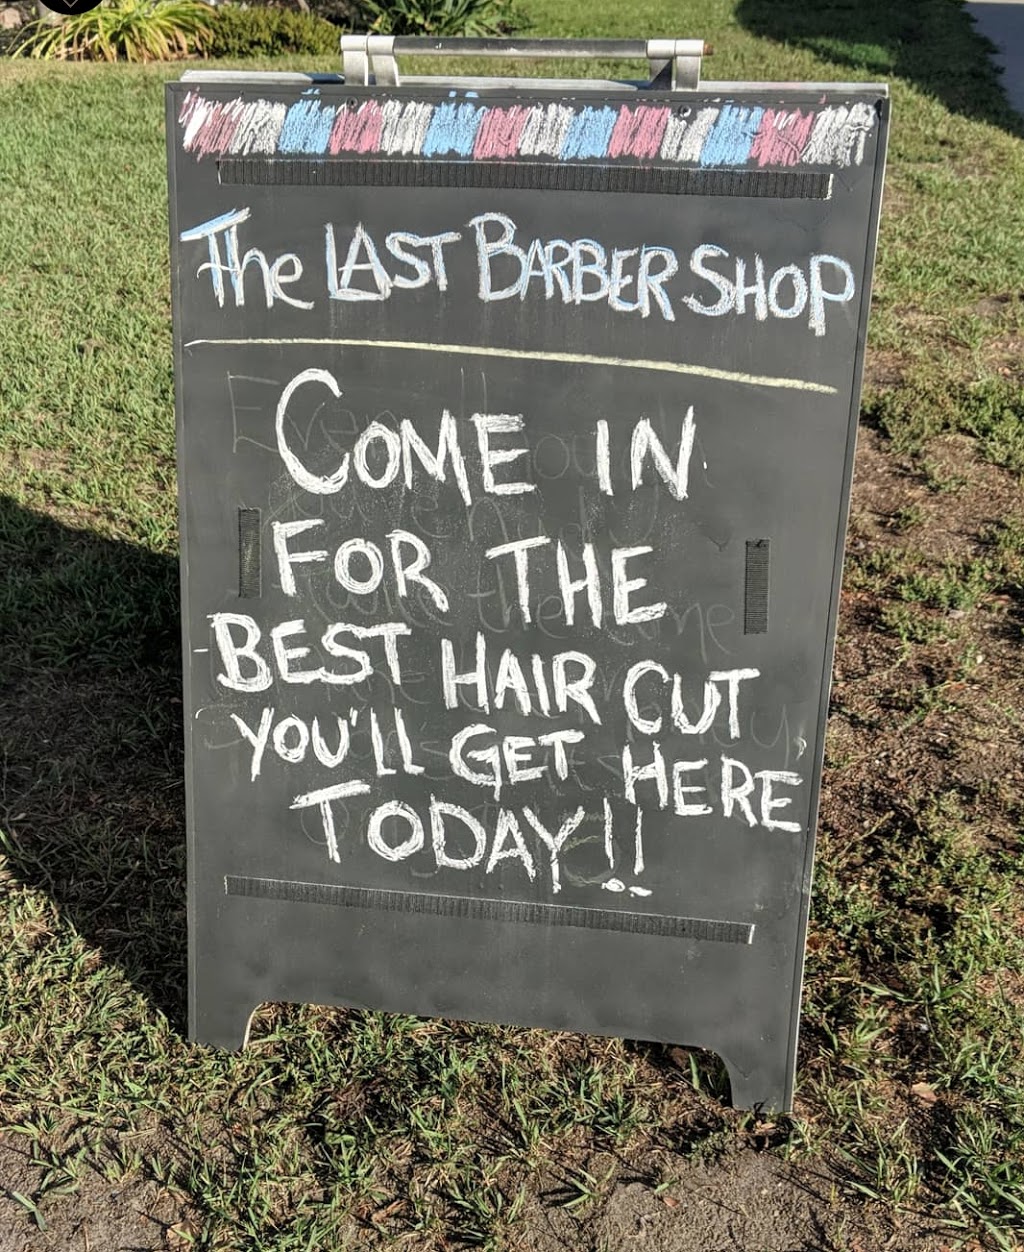 The LAST BARBER SHOP
COME IN
FOR THE
BEST HAIR CUT
YOU'LL GET HERE
TODAY!!